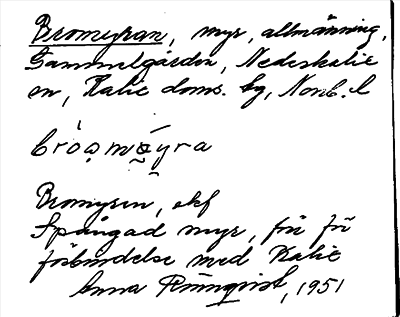 Bromyran, myr, allmänning,
Gammelgården, Nederkalix
sn, Kalix doms. hg, Nonb. l
bròəmǽyra
Bromyren, ekf
Spångad myr, för
förbindelse med Kalix
Anna Rönnqvist, 1951